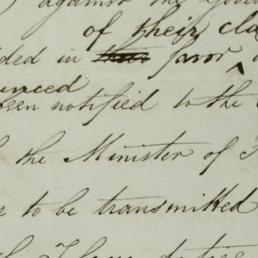 against the
of their cla
ded in their favor
been notified to the
the Minister of
to be transmitted